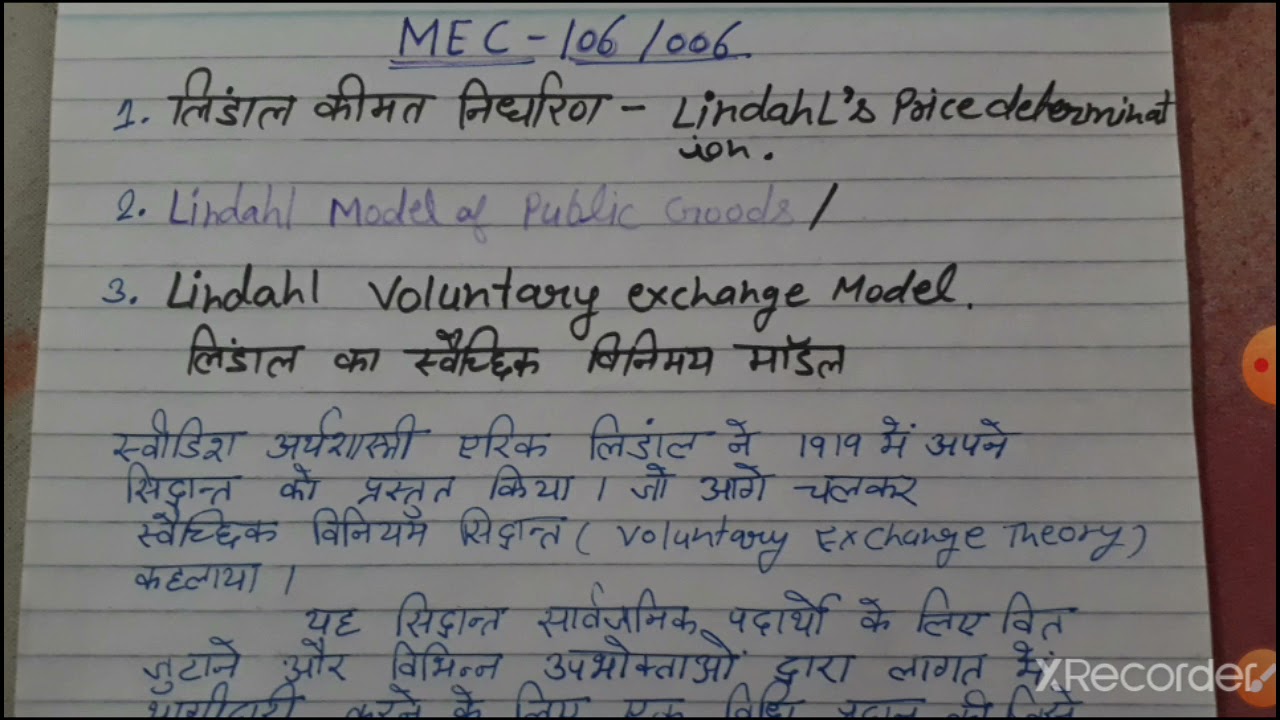 MEC-106/006
1. लिंडाल कीमत निर्धारण - Lindahl's Price determinat
ion.
2. Lindahl Model of Public Goods /
3. Lindahl Voluntary exchange Model.
लिंडाल का स्वैच्छिक विनिमय मॉडल
स्वीडिश अर्थशास्त्री एरिक लिडांल ने 1919 में अपने
सिद्वान्त को प्रस्तुत किया । जो आगे चलकर
स्वैच्छिक विनियम सिद्वान्त ( Voluntary Exchange Theory)
कहलाया ।
यह सिद्वान्त सार्वजनिक पदार्थो के लिए वित
जुटाने और विभिन्न उपभोक्ताओं द्वारा लागत में
भागीदारी करने के लिए एक विधि प्रदान की जिसे
XRecorder